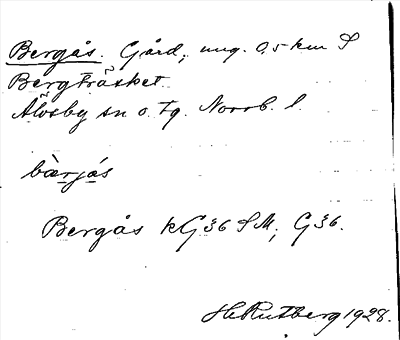 Bergås. Gård, ung. 0,5 km S
Bergträsket.
Älvsby sn o. tg. Norrb. l.
bàrjås
Bergås kG36 SM; G36.
H. Rutberg 1928.